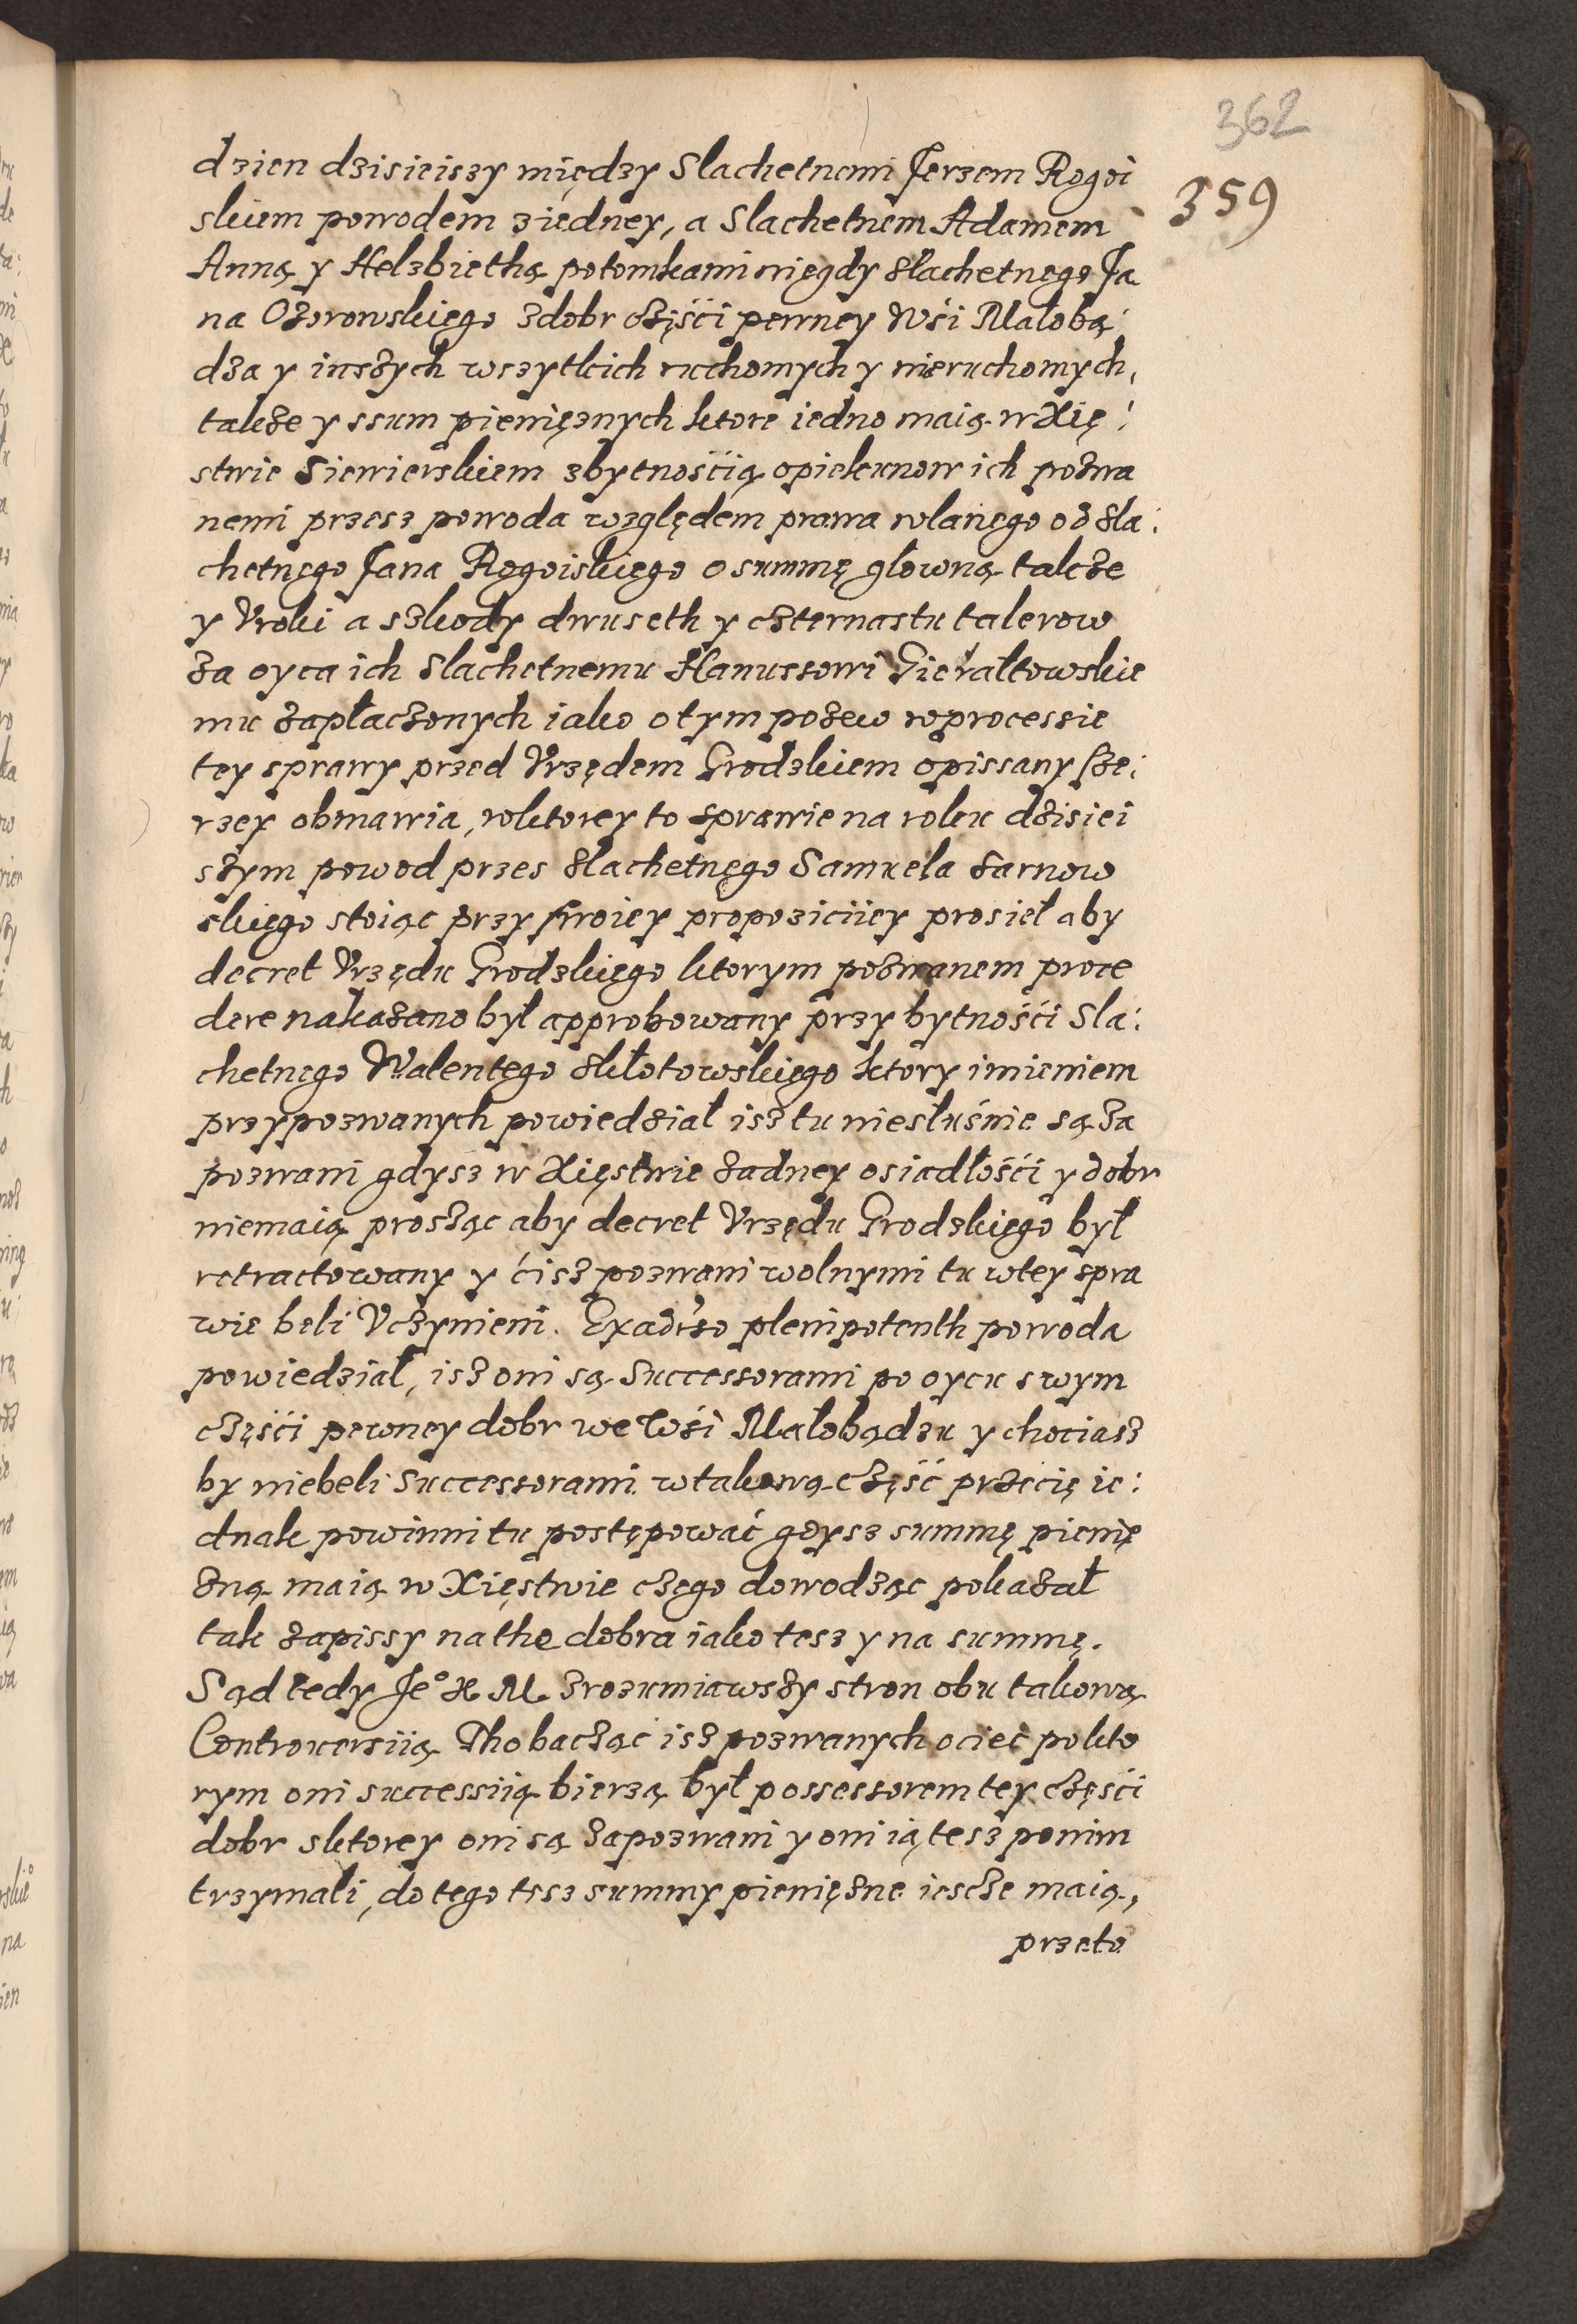 362
359
dzien dzisieiszy między Slachetnemi Jerzem Rogoi
skiem powodem ziedney, a Slachetnem Adamem
Anną y Helzbiethą potomkami niegdy slachetnego Ja
na Ożorowskiego zdobr części pewney Wsi Małobą:
dza y inszych wszytkich ruchomych y nieruchomych,
także y ssum pieniężnych ktore iedno maią w Xię:
stwie Siewierskiem zbytnośćią opiekunow ich pozwa
nemi przesz powoda względem prawa wlanego od sla:
chetnego Jana Rogoiskiego o summę głowną także
y Vroki a szkody dwuseth y czternastu talerow
za oyca ich slachetnemu Hanussowi Gierałtowskie
mu zapłaczonych iako o tym pozew wprocessie
tey sprawy przed Vrzędem Grodzkiem opissany sze:
rzey obmawia, wktorey to sprawie na roku dzisiei
szym powod przes slachetnego Samuela Sarnow
skiego stoiąc przy swoiey propoziciiey prosieł aby
decret Vrzędu Grodzkiego ktorym pozwanem proce
dere nakazano był approbowany przy bytnośći Sla:
chetnego Walentego Skłotowskiego ktory imieniem
przypozwanych powiedział isz tu niesłuśnie są za
pozwani gdysz w Xięstwie żadney osiadłośći y dobr
niemaią prosząc aby decret Vrzędu Grodzkiego był
retractowany y ćisz pozwani wolnymi tu wtey spra
wie beli Vczynieni. Exadrso plenipotenth powoda
powiedział, isz oni są Successorami po oycu swym
częśći pewney dobr we Wśi Małobądzu y chociasz
by niebeli Successorami wtakową część przecię ie:
dnak powinni tu postępować gdysz summę pienię
żną maią w Xięstwie czego dowodząc pokazał
tak zapissy na the dobra iako tesz y na summę.
Sąd tedy Jeº X M zrozumiawszy stron obu takową
Controuersiią Tho bacząć isz pozwanych ociec po kto
rym oni successiią bierzą był possessorem tey częśći
dobr sktorey oni są zapozwani y oni ią tesz ponim
trzymali, do tego tesz summy pieniężne iescze maią,
przeto